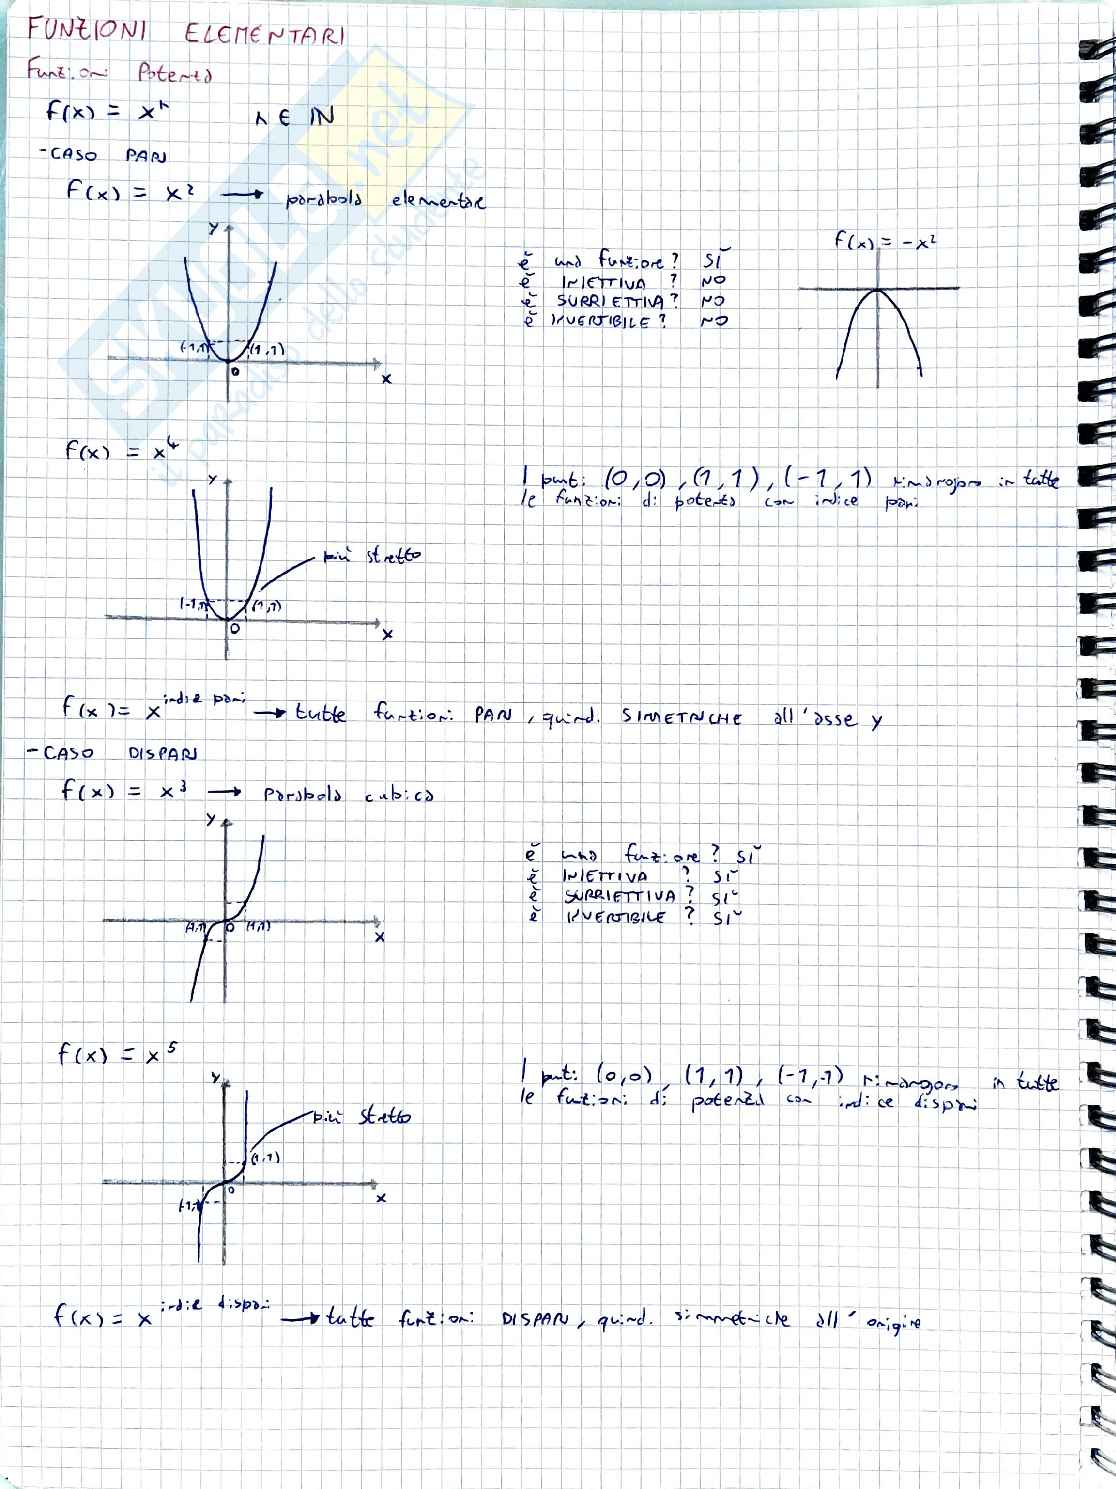 FUNZIONI ELEMENTARI
Funzioni Potenza
f(x) = xⁿ n ∈ IN
- CASO PARI
f(x) = x² → parabola elementare
y
(-1,1) (1,1)
0
x
è una funzione? SÌ
è INIETTIVA ? NO
è SURRIETTIVA? NO
è INVERTIBILE? NO
f(x) = -x²
f(x) = x⁴
y
più stretto
(-1,1) (1,1)
0
x
I punti (0,0), (1,1), (-1,1) rimangono in tutte
le funzioni di potenza con indice pari
f(x) = x^indice pari → tutte funzioni PARI, quindi SIMETRICHE all'asse y
- CASO DISPARI
f(x) = x³ → parabola cubica
y
(1,1) 0 (1,1)
x
è una funzione? SÌ
è INIETTIVA ? SÌ
è SURRIETTIVA? SÌ
è INVERTIBILE ? SÌ
f(x) = x⁵
y
più stretto
(1,1)
0
x
I punti (0,0), (1,1), (-1,-1) rimangono in tutte
le funzioni di potenza con indice dispari
f(x) = x^indice dispari → tutte funzioni DISPARI, quindi simmetriche all'origine
SKUOLA.net
il paradiso dello studente